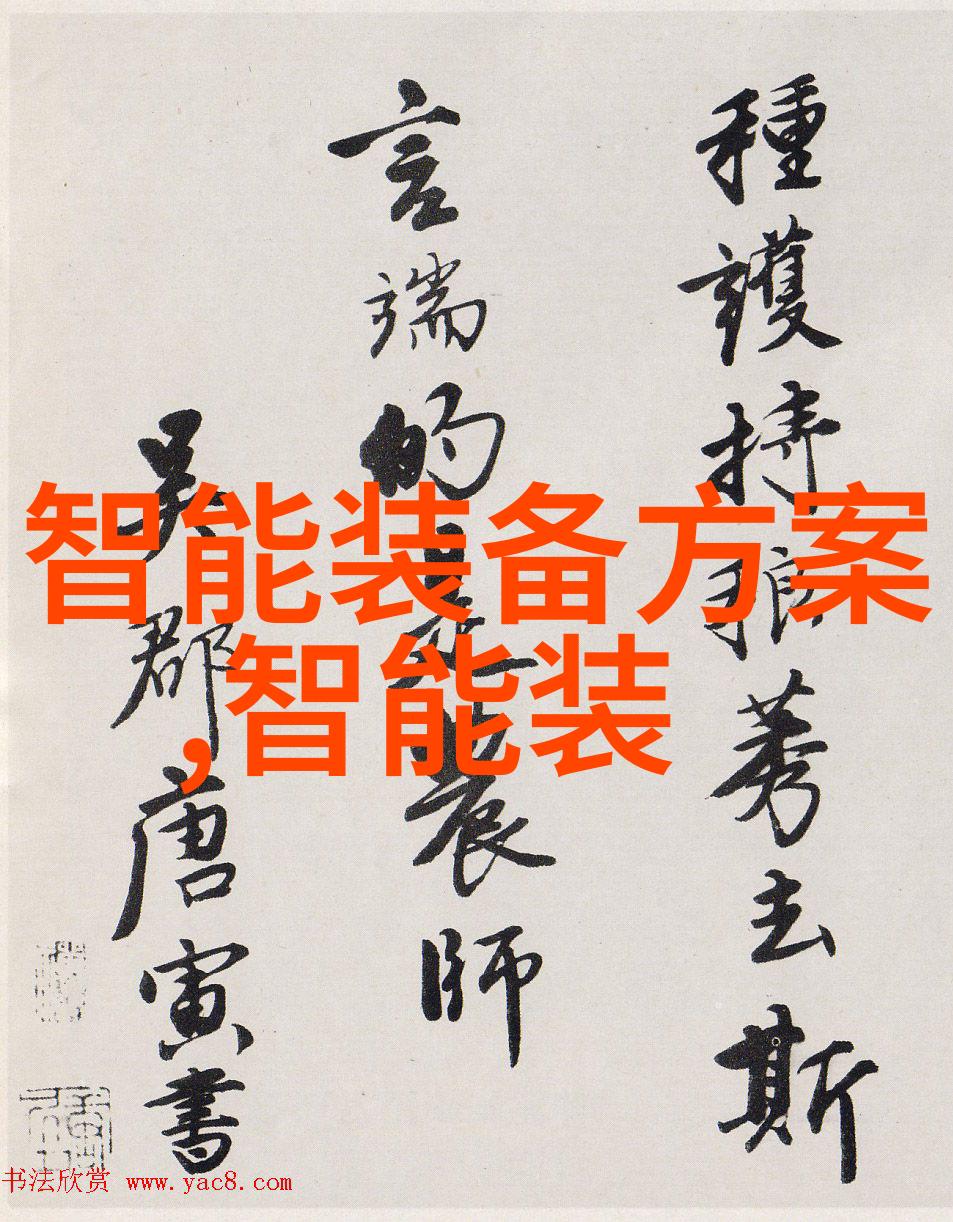 種護持狼莠去斯
言端的是農師
吳郡唐寅書
智能装备方案
,智能装
书法欣赏 www.yac8.com